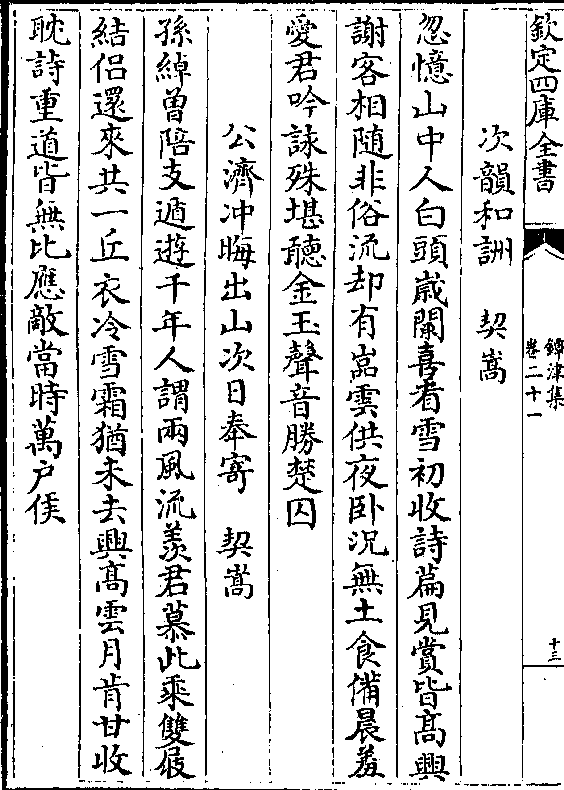 欽定四庫全書
鐔津集
卷二十一
十三
次韻和訓 契嵩
忽憶山中人白頭嵗闌喜看雪初收詩篇見賞皆髙興
謝客相隨非俗流却有嵓雲供夜卧况無土食備晨羞
愛君吟詠殊堪聽金玉聲音勝楚囚
公濟冲晦出山次日奉寄 契嵩
孫綽曾陪支遁遊千年人謂兩風流羨君慕此乘雙屐
結侣還來共一丘衣冷雪霜猶未去興髙雲月肯甘收
耽詩重道皆無比應敵當時萬户侯